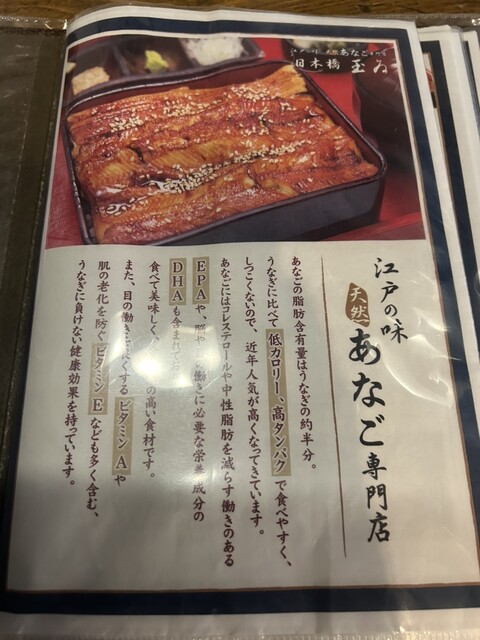 江戸の味 天然あなご専門店
日本橋 玉ゐ
江戸の味
天然
あなご専門店
あなごの脂肪含有量はうなぎの約半分。
うなぎに比べて低カロリー、高タンパクで食べやすく、
しつこくないので、近年人気が高くなってきています。
あなごにはコレステロールや中性脂肪を減らす働きのある
EPAや、脳や 働きに必要な栄養成分の
DHAも含まれてお
食べて美味しく、 の高い食材です。
また、目の働きを良くするビタミンAや
肌の老化を防ぐビタミンEなども多く含む、
うなぎに負けない健康効果を持っています。